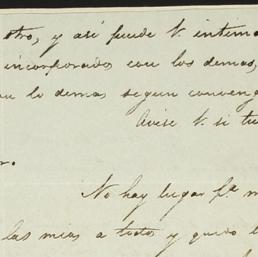 stro, y así puede V. interna
incorporados con los demas,
lo demas segun conveng
Avise V. si tu
r.
No hay lugar p.ª m
las mias a todos y quedo